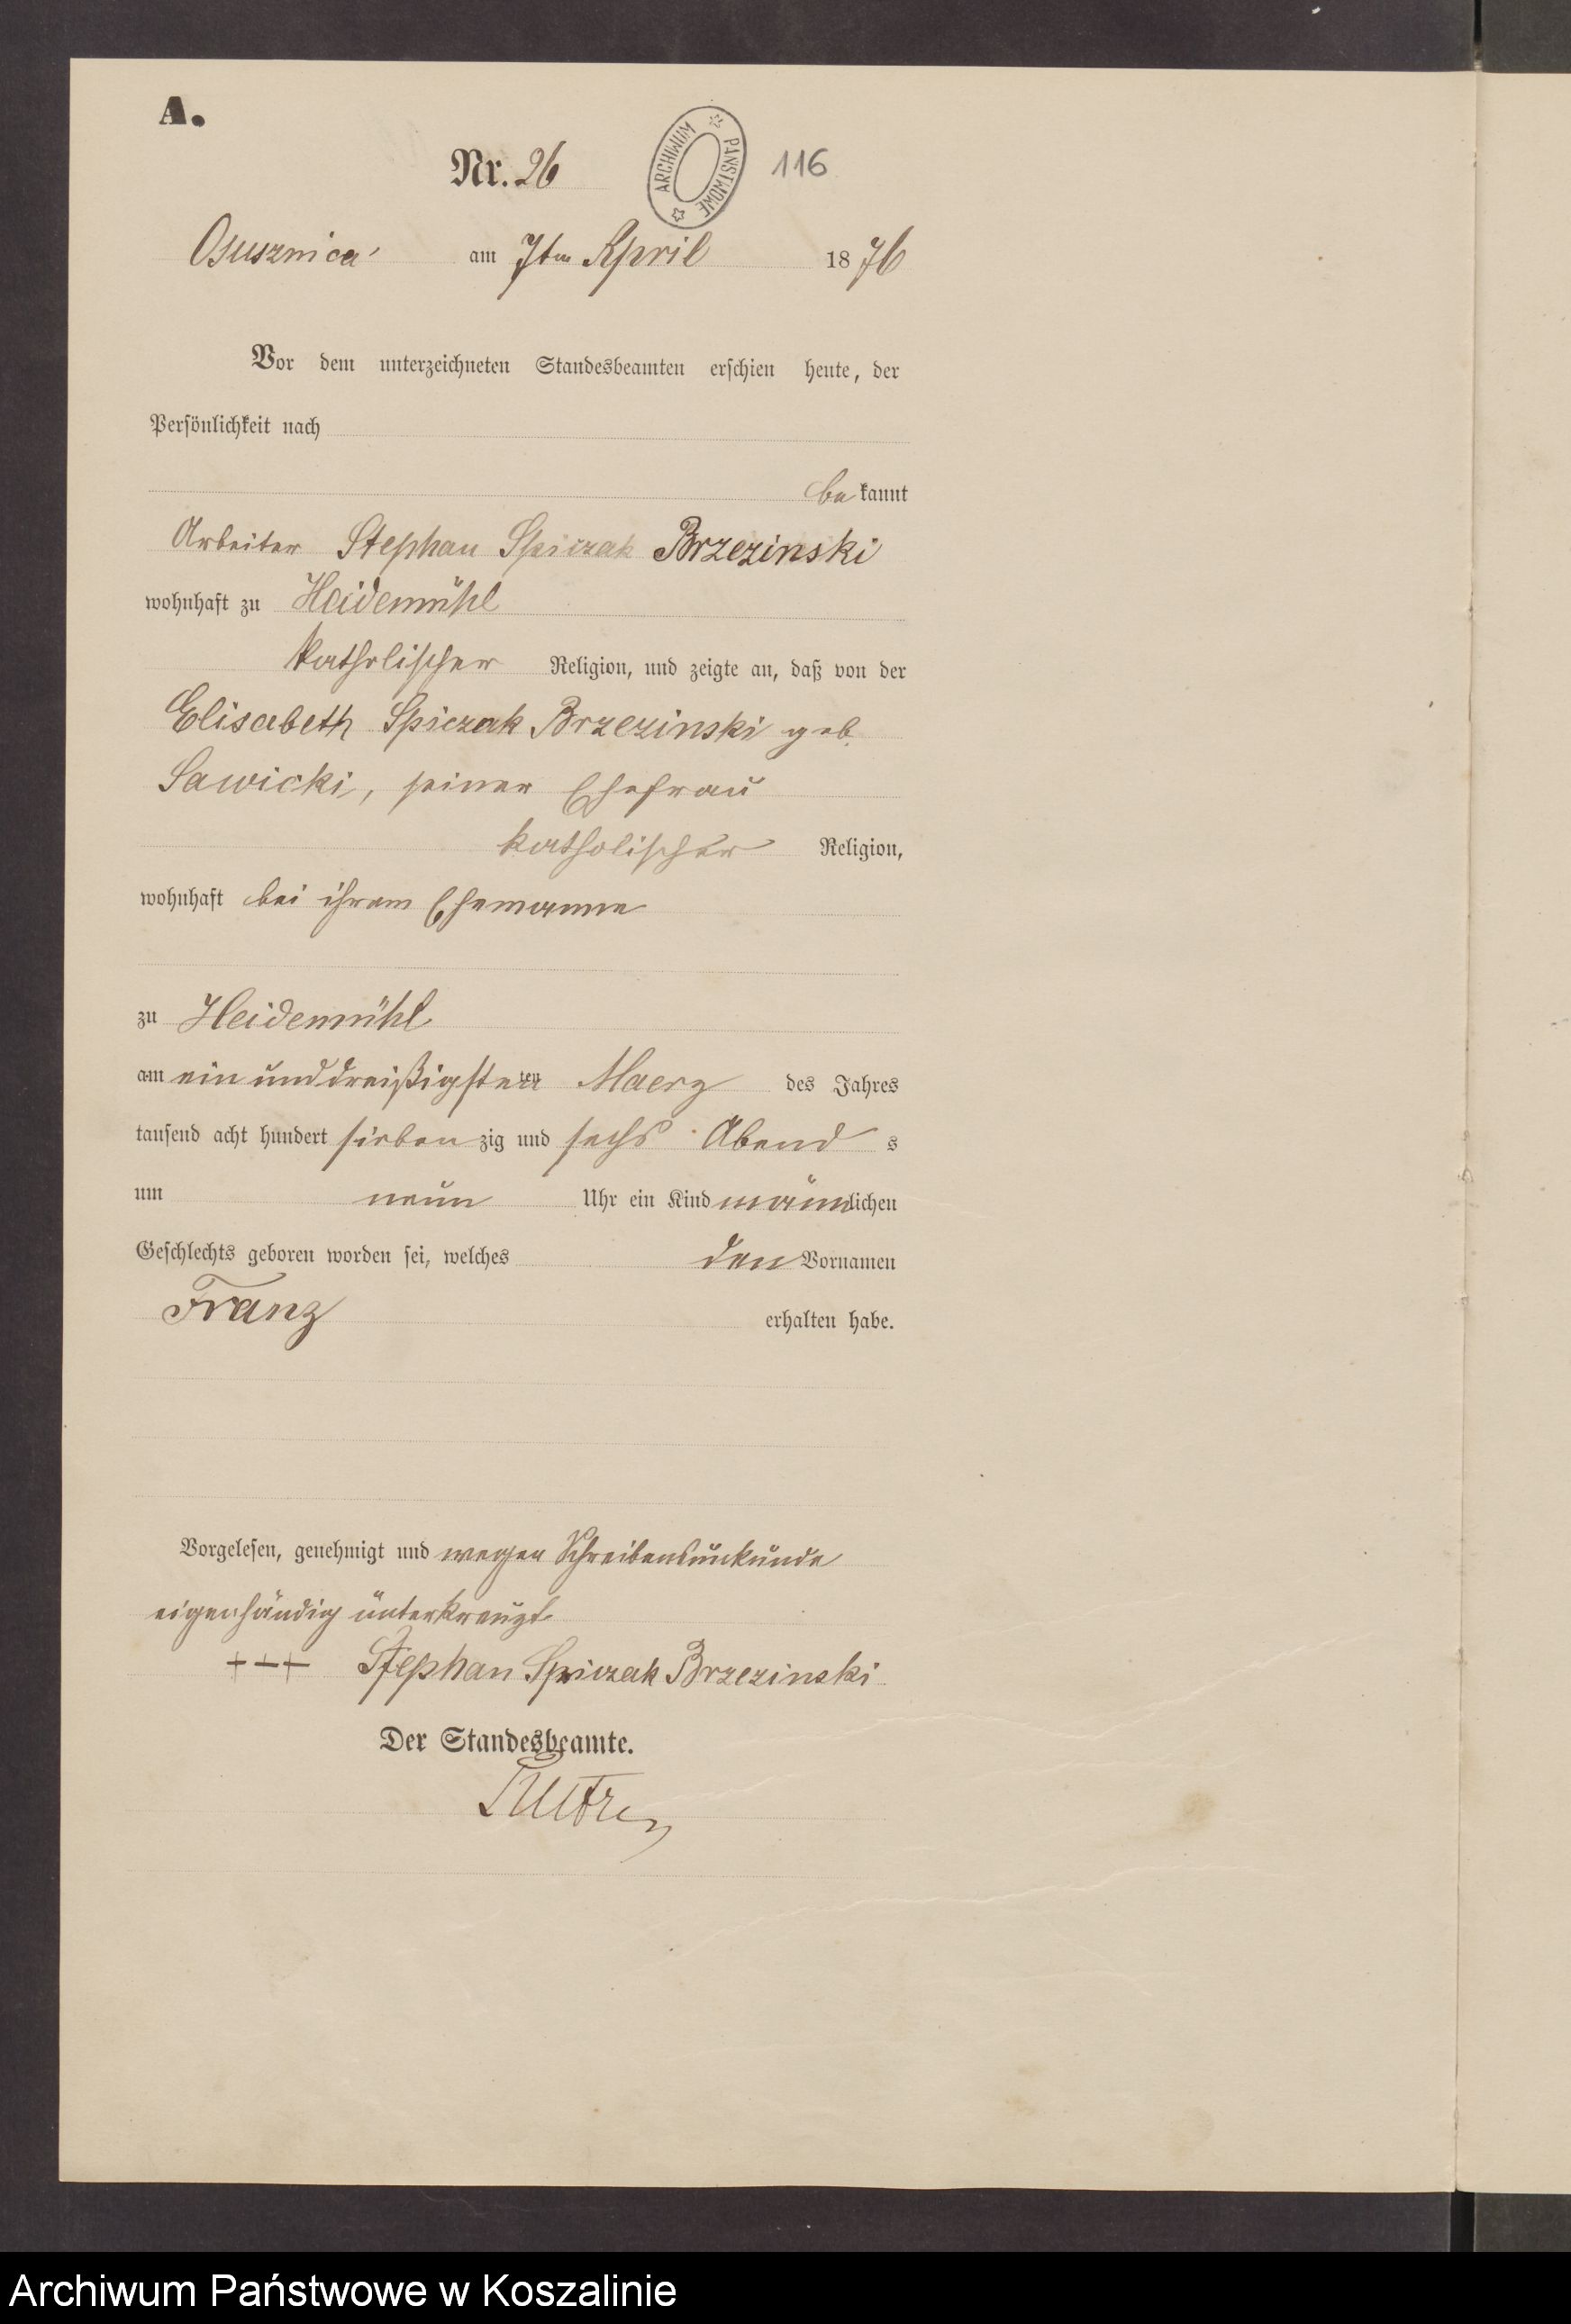 A.
Nr. 26
ARCHIWUM PAŃSTWOWE
116
Osusznica am 7ten April 1876
Vor dem unterzeichneten Standesbeamten erschien heute, der
Persönlichkeit nach
bekannt
Arbeiter Stephan Spiczak Brzezinski
wohnhaft zu Heidemühl
katholischer Religion, und zeigte an, daß von der
Elisabeth Spiczak Brzezinski geb.
Sawicki, seiner Ehefrau
katholischer Religion,
wohnhaft bei ihrem Ehemanne
zu Heidemühl
am ein und dreißigsten Maerz des Jahres
tausend acht hundert siebenzig und sechs Abends
um neun Uhr ein Kind männlichen
Geschlechts geboren worden sei, welches den Vornamen
Franz erhalten habe.
Vorgelesen, genehmigt und wegen Schreibensunkunde
eigenhändig unterkreuzt
+++ Stephan Spiczak Brzezinski
Der Standesbeamte.
Archiwum Państwowe w Koszalinie